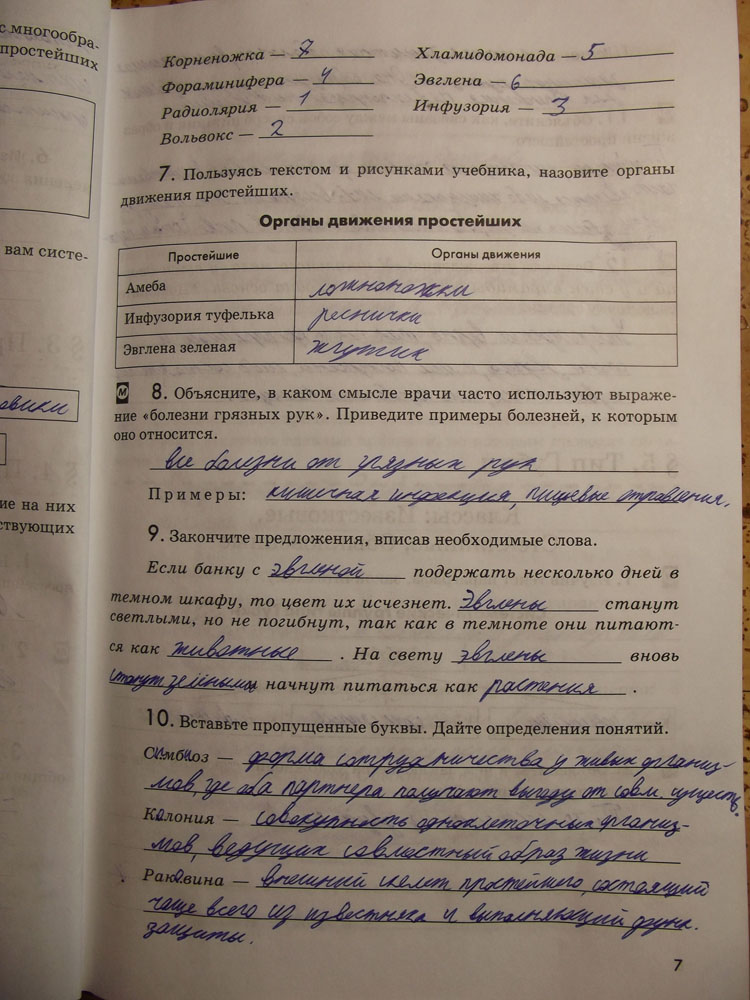 с многообра-
простейших
вам систе-
овики
ие на них
ствующих
Корненожка — 7
Хламидомонада — 5
Фораминифера — 4
Эвглена — 6
Радиолярия — 1
Инфузория — 3
Вольвокс — 2
7. Пользуясь текстом и рисунками учебника, назовите органы
движения простейших.
Органы движения простейших
Простейшие Органы движения
Амеба ложноножки
Инфузория туфелька реснички
Эвглена зеленая жгутик
М 8. Объясните, в каком смысле врачи часто используют выраже-
ние «болезни грязных рук». Приведите примеры болезней, к которым
оно относится.
все болезни от грязных рук
Примеры: кишечная инфекция, пищевые отравления.
9. Закончите предложения, вписав необходимые слова.
Если банку с эвгленой подержать несколько дней в
темном шкафу, то цвет их исчезнет. Эвглены станут
светлыми, но не погибнут, так как в темноте они питают-
ся как животные . На свету эвглены вновь
станут зелёными начнут питаться как растения .
10. Вставьте пропущенные буквы. Дайте определения понятий.
Симбиоз — форма сотрудничества у живых организ-
мов, где оба партнера получают выгоду от совм. существ.
Колония — совокупность одноклеточных организ-
мов, ведущих совместный образ жизни
Раковина — внешний скелет простейшего, состоящий
чаще всего из известняка и выполняющий функ.
защиты.
7